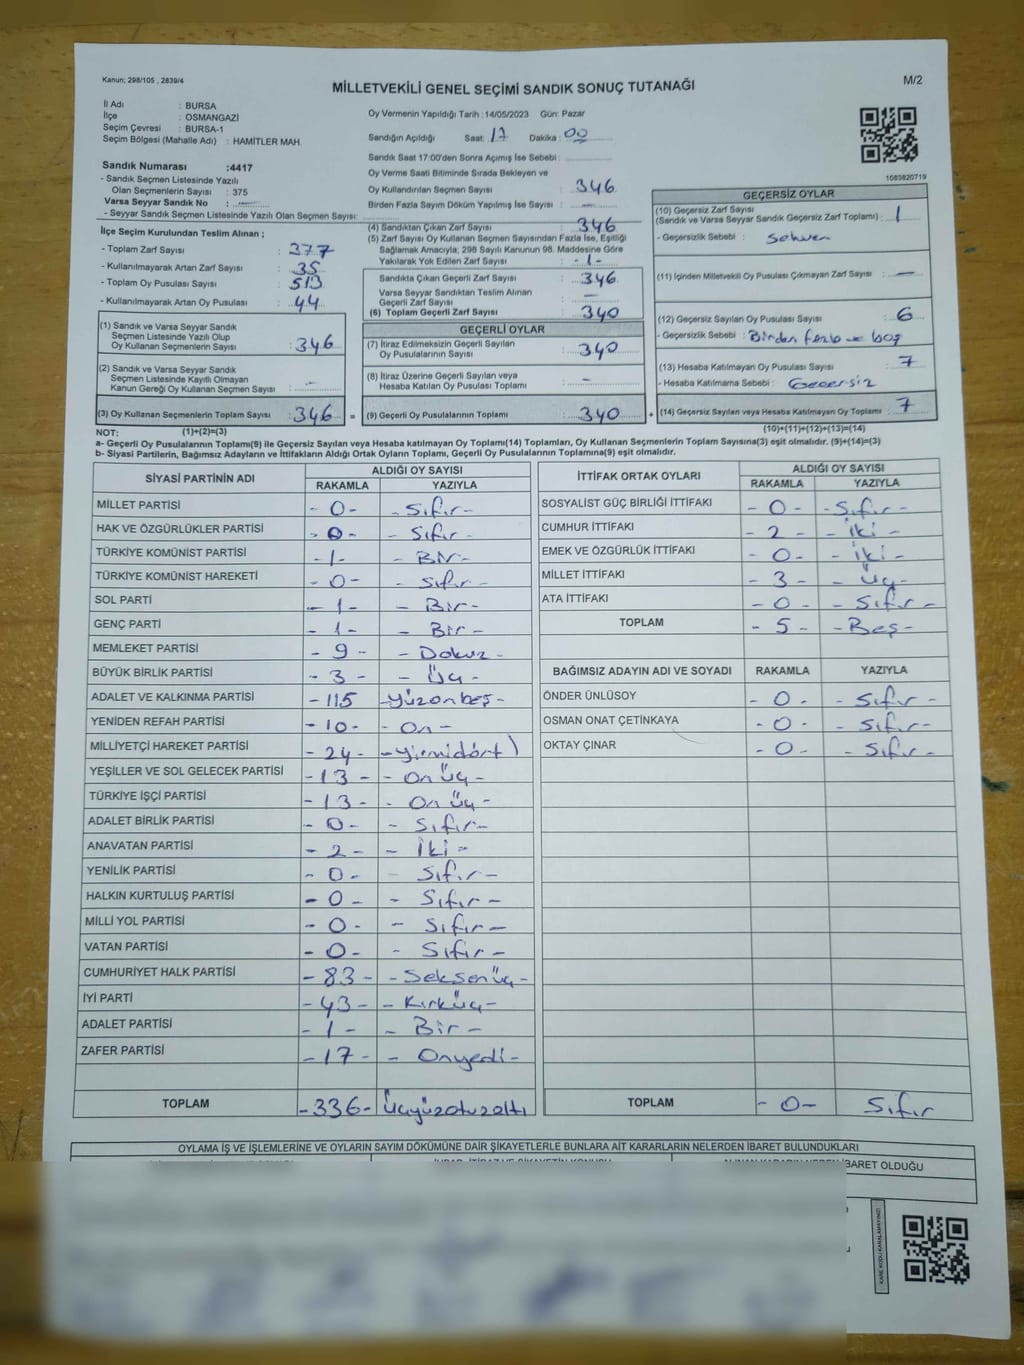 Kanun: 298/105 , 2839/4
MİLLETVEKİLİ GENEL SEÇİMİ SANDIK SONUÇ TUTANAĞI
M/2
İl Adı : BURSA
İlçe : OSMANGAZİ
Seçim Çevresi : BURSA-1
Seçim Bölgesi (Mahalle Adı) : HAMİTLER MAH.
Sandık Numarası :4417
- Sandık Seçmen Listesinde Yazılı
Olan Seçmenlerin Sayısı : 375
Varsa Seyyar Sandık No :
- Seyyar Sandık Seçmen Listesinde Yazılı Olan Seçmen Sayısı:
Oy Vermenin Yapıldığı Tarih : 14/05/2023 Gün: Pazar
Sandığın Açıldığı Saat: 17 Dakika : 00
Sandık Saat 17:00'den Sonra Açımış İse Sebebi :
Oy Verme Saati Bitiminde Sırada Bekleyen ve
Oy Kullandırılan Seçmen Sayısı : 346
Birden Fazla Sayım Döküm Yapılmış İse Sayısı : -
1083820719
İlçe Seçim Kurulundan Teslim Alınan ;
- Toplam Zarf Sayısı : 377
- Kullanılmayarak Artan Zarf Sayısı : 35
- Toplam Oy Pusulası : 513
- Kullanılmayarak Artan Oy Pusulası : 44
(1) Sandık ve Varsa Seyyar Sandık
Seçmen Listesinde Yazılı Olup
Oy Kullanan Seçmenlerin Sayısı : 346
(2) Sandık ve Varsa Seyyar Sandık
Seçmen Listesinde Kayıtlı Olmayan
Kanun Gereği Oy Kullanan Seçmen Sayısı : -
(3) Oy Kullanan Seçmenlerin Toplam Sayısı : 346 =
(4) Sandıktan Çıkan Zarf Sayısı : 346
(5) Zarf Sayısı Oy Kullanan Seçmen Sayısından Fazla İse, Eşitliği
Sağlamak Amacıyla, 298 Sayılı Kanunun 98. Maddesine Göre
Yakılarak Yok Edilen Zarf Sayısı : -1-
Sandıkta Çıkan Geçerli Zarf Sayısı : 346
Varsa Seyyar Sandıktan Teslim Alınan
Geçerli Zarf Sayısı : -
(6) Toplam Geçerli Zarf Sayısı : 340
GEÇERLİ OYLAR
(7) İtiraz Edilmeksizin Geçerli Sayılan
Oy Pusulalarının Sayısı : 340
(8) İtiraz Üzerine Geçerli Sayılan veya
Hesaba Katılan Oy Pusulası Toplamı : -
(9) Geçerli Oy Pusulalarının Toplamı : 340 +
GEÇERSİZ OYLAR
(10) Geçersiz Zarf Sayısı
(Sandık ve Varsa Seyyar Sandık Geçersiz Zarf Toplamı) : 1
- Geçersizlik Sebebi : Sehven
(11) İçinden Milletvekili Oy Pusulası Çıkmayan Zarf Sayısı : -
(12) Geçersiz Sayılan Oy Pusulası Sayısı : 6
- Geçersizlik Sebebi : Birden fazla ve boş
(13) Hesaba Katılmayan Oy Pusulası Sayısı : 7
- Hesaba Katılmama Sebebi : Geçersiz
(14) Geçersiz Sayılan veya Hesaba Katılmayan Oy Toplamı : 7
NOT: (1)+(2)=(3) (10)+(11)+(12)+(13)=(14)
a- Geçerli Oy Pusulalarının Toplamı(9) ile Geçersiz Sayılan veya Hesaba katılmayan Oy Toplamı(14) Toplamları, Oy Kullanan Seçmenlerin Toplam Sayısına(3) eşit olmalıdır. (9)+(14)=(3)
b- Siyasi Partilerin, Bağımsız Adayların ve İttifakların Aldığı Ortak Oyların Toplamı, Geçerli Oy Pusulalarının Toplamına(9) eşit olmalıdır.
SİYASİ PARTİNİN ADI ALDIĞI OY SAYISI
RAKAMLA YAZIYLA
MİLLET PARTİSİ - 0 - - Sıfır -
HAK VE ÖZGÜRLÜKLER PARTİSİ - 0 - - Sıfır -
TÜRKİYE KOMÜNİST PARTİSİ - 1 - - Bir -
TÜRKİYE KOMÜNİST HAREKETİ - 0 - - Sıfır -
SOL PARTİ - 1 - - Bir -
GENÇ PARTİ - 1 - - Bir -
MEMLEKET PARTİSİ - 9 - - Dokuz -
BÜYÜK BİRLİK PARTİSİ - 3 - - Üç -
ADALET VE KALKINMA PARTİSİ - 115 - Yüzonbeş -
YENİDEN REFAH PARTİSİ - 10 - - On -
MİLLİYETÇİ HAREKET PARTİSİ - 24 - - Yirmidört
YEŞİLLER VE SOL GELECEK PARTİSİ - 13 - - On üç -
TÜRKİYE İŞÇİ PARTİSİ - 13 - - On üç -
ADALET BİRLİK PARTİSİ - 0 - - Sıfır -
ANAVATAN PARTİSİ - 2 - - İki -
YENİLİK PARTİSİ - 0 - - Sıfır -
HALKIN KURTULUŞ PARTİSİ - 0 - - Sıfır -
MİLLİ YOL PARTİSİ - 0 - - Sıfır -
VATAN PARTİSİ - 0 - - Sıfır -
CUMHURİYET HALK PARTİSİ - 83 - - Seksenüç -
İYİ PARTİ - 43 - - Kırküç -
ADALET PARTİSİ - 1 - - Bir -
ZAFER PARTİSİ - 17 - - Onyedi -
TOPLAM - 336 - Üçyüzotuzaltı
İTTİFAK ORTAK OYLARI ALDIĞI OY SAYISI
RAKAMLA YAZIYLA
SOSYALİST GÜÇ BİRLİĞİ İTTİFAKI - 0 - - Sıfır -
CUMHUR İTTİFAKI - 2 - - İki -
EMEK VE ÖZGÜRLÜK İTTİFAKI - 0 - - İki -
MİLLET İTTİFAKI - 3 - - Üç -
ATA İTTİFAKI - 0 - - Sıfır -
TOPLAM - 5 - - Beş -
BAĞIMSIZ ADAYIN ADI VE SOYADI RAKAMLA YAZIYLA
ÖNDER ÜNLÜSOY - 0 - - Sıfır -
OSMAN ONAT ÇETİNKAYA - 0 - - Sıfır -
OKTAY ÇINAR - 0 - - Sıfır -
TOPLAM - 0 - Sıfır
OYLAMA İŞ VE İŞLEMLERİNE VE OYLARIN SAYIM DÖKÜMÜNE DAİR ŞİKAYETLERLE BUNLARA AİT KARARLARIN NELERDEN İBARET BULUNDUKLARI
İBARET OLDUĞU
KARE KODU KARALAMAYINIZ!